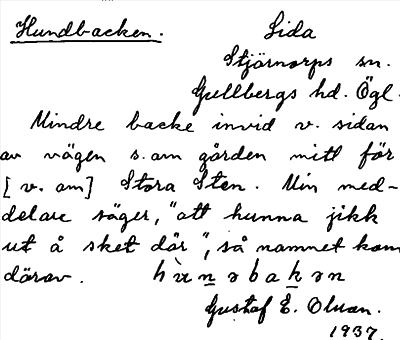 Hundbacken. Sida
Stjärnorps sn.
Gullbergs hd. Ögl.
Mindre backe invid v. sidan
av vägen s. om gården mitt för
[v. om] Stora Sten. Min med-
delare säger, "att hunna jikk
ut å sket där", så namnet kom
därav. hùnəbakən
Gustaf E. Olsson.
1937.